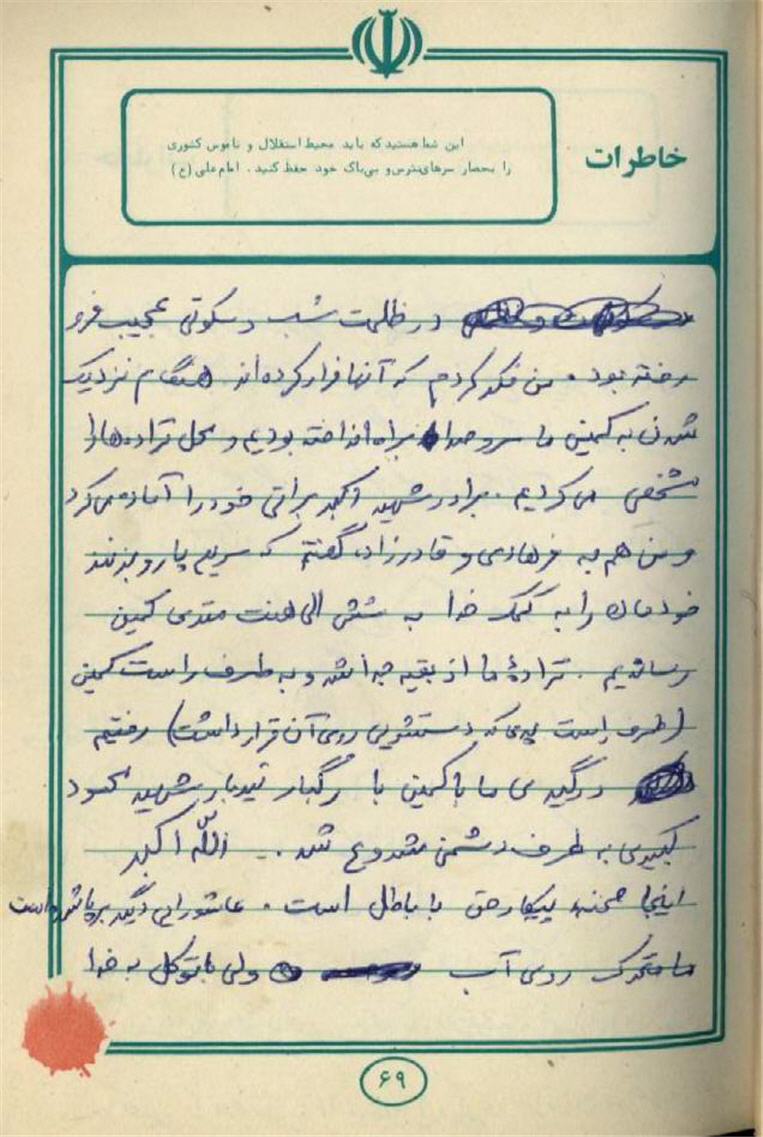 خاطرات
این شما هستید که باید محیط استقلال و ناموس کشوری
را بحصار سرهای نترس و بی‌باک خود حفظ کنید. امام علی (ع)
در ظلمت شب و سکوتی عجیب فرو
رفته بود. من فکر کردم که آنها فرار کرده‌اند هنگام نزدیک
شدن به کمین ما سر و صدا براه انداخته بودیم و محل قراده‌ها را
مشخص می کردیم. برادر شهید اکبر براتی خود را آماده می‌کرد
و من هم به فرهادی و قادرزاده گفتم که سریع پارو بزنند
خودمان را به کمک خدا به شش الی هفت متری کمین
رساندیم. قرادهٔ ما از بقیه جدا شد و به طرف راست کمین
(طرف راست پدی که دستشویی روی آن قرار داشت) رفتیم
درگیری ما با کمین با رگبار تیربار شهید محمود
کبیری به طرف دشمن شروع شد .. الله اکبر
اینجا صحنه پیکار حق با باطل است. عاشورایی دیگر برپا شده است
ما متحرک روی آب ولی با توکل به خدا
۶۹